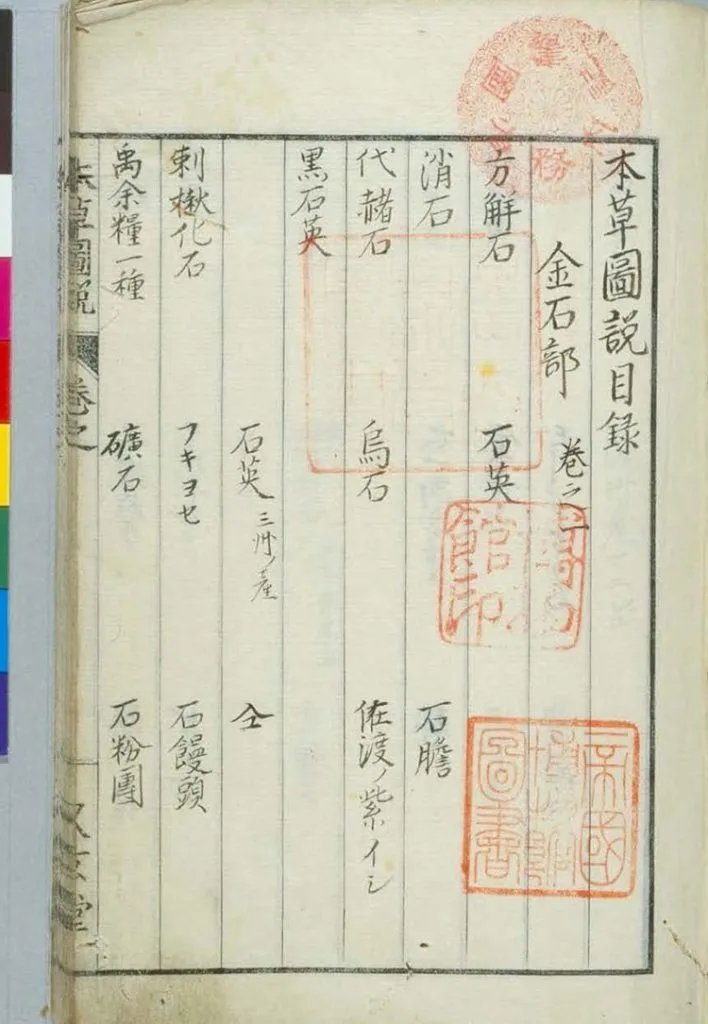 本草圖説目録
金石部 卷之一
方解石 石英
消石 石膽
代赭石 烏石 佐渡ノ紫イシ
黒石英
石英 三州ノ産 仝
刺楸化石 フキヨセ 石饅頭
禹余糧一種 礦石 石粉團
本草圖説 卷之
帝國博物館圖書
博物館印